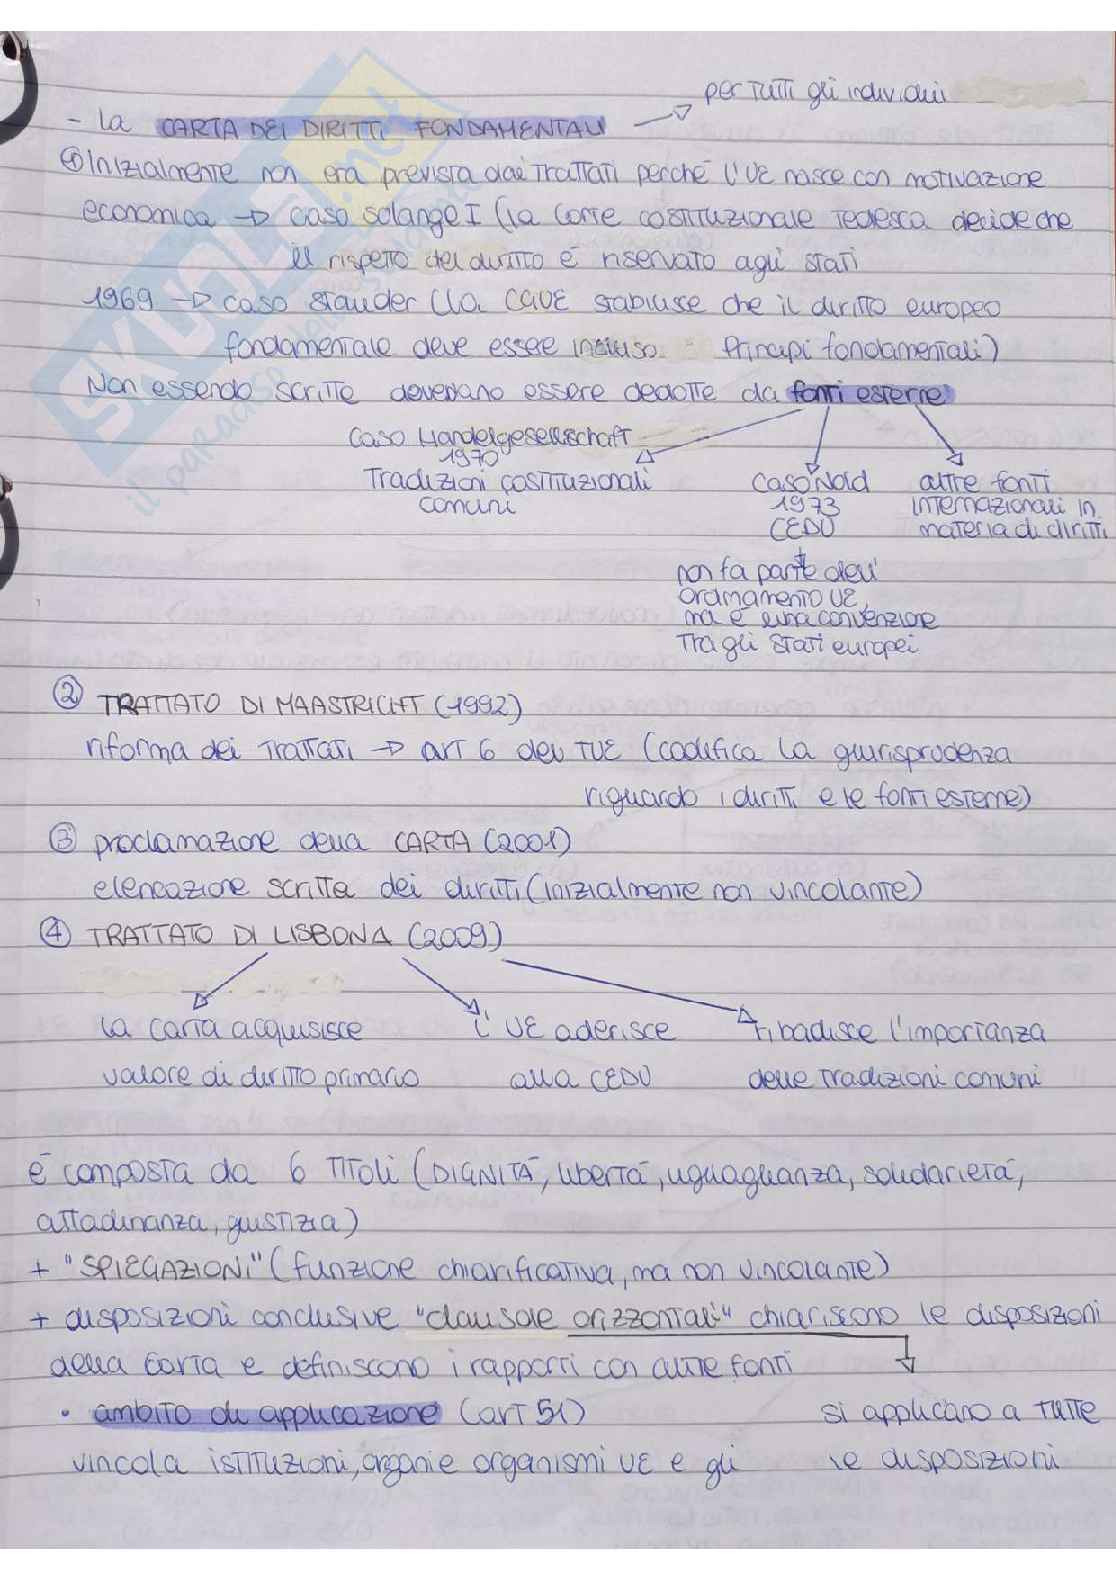 per tutti gli individui
- la CARTA DEI DIRITTI FONDAMENTALI →
① Inizialmente non era prevista dai trattati perché l'UE nasce con motivazione
economica → caso solange I (la corte costituzionale tedesca decide che
il rispetto del diritto è riservato agli stati
1969 → caso stauder (la CGUE stabilisce che il diritto europeo
fondamentale deve essere incluso Principi fondamentali)
Non essendo scritte dovevano essere dedotte da fonti esterne
Caso Handelgesellschaft
1970
Tradizioni costituzionali
comuni
Caso Nold
1973
CEDU
non fa parte dell'
ordinamento UE,
ma è una convenzione
tra gli stati europei
altre fonti
internazionali in
materia di diritti
② TRATTATO DI MAASTRICHT (1992)
riforma dei trattati → art 6 del TUE (codifica la giurisprudenza
riguardo i diritti e le fonti esterne)
③ proclamazione della CARTA (2001)
elencazione scritta dei diritti (inizialmente non vincolante)
④ TRATTATO DI LISBONA (2009)
la carta acquisisce
valore di diritto primario
l'UE aderisce
alla CEDU
ribadisce l'importanza
delle tradizioni comuni
è composta da 6 titoli (DIGNITÀ, libertà, uguaglianza, solidarietà,
cittadinanza, giustizia)
+ "SPIEGAZIONI" (funzione chiarificativa, ma non vincolante)
+ disposizioni conclusive "clausole orizzontali" chiariscono le disposizioni
della Carta e definiscono i rapporti con altre fonti
• ambito di applicazione (art 51)
vincola istituzioni, organi e organismi UE e gli
si applicano a tutte
le disposizioni
SKUOLA.net